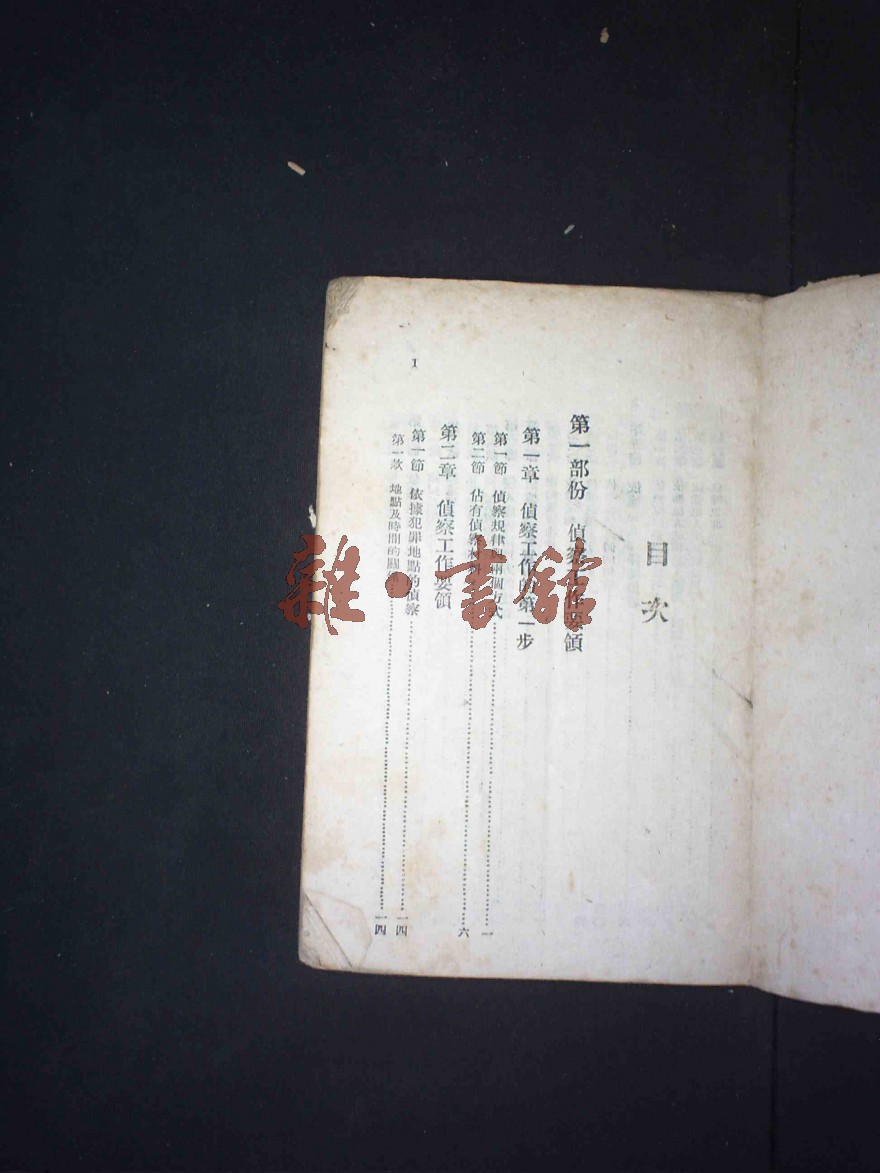 目次
第一部份 偵察工作要領
第一章 偵察工作的第一步
第一節 偵察規律的兩個方式……一
第二節 佔有偵察材料……六
第二章 偵察工作要領
第一節 依據犯罪地點的偵察……一四
第一款 地點及時間的關……一四
1
雜·書館